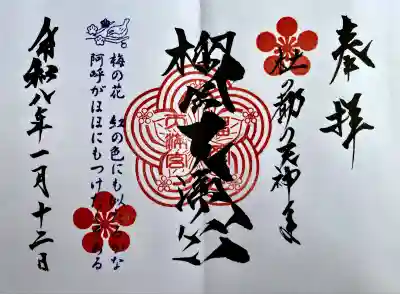 奉拝
杜の都の天神さま
榴岡天満宮
梅の花 紅の色にも似たるかな
阿呼がほほにもつけたくぞある
令和八年一月十二日